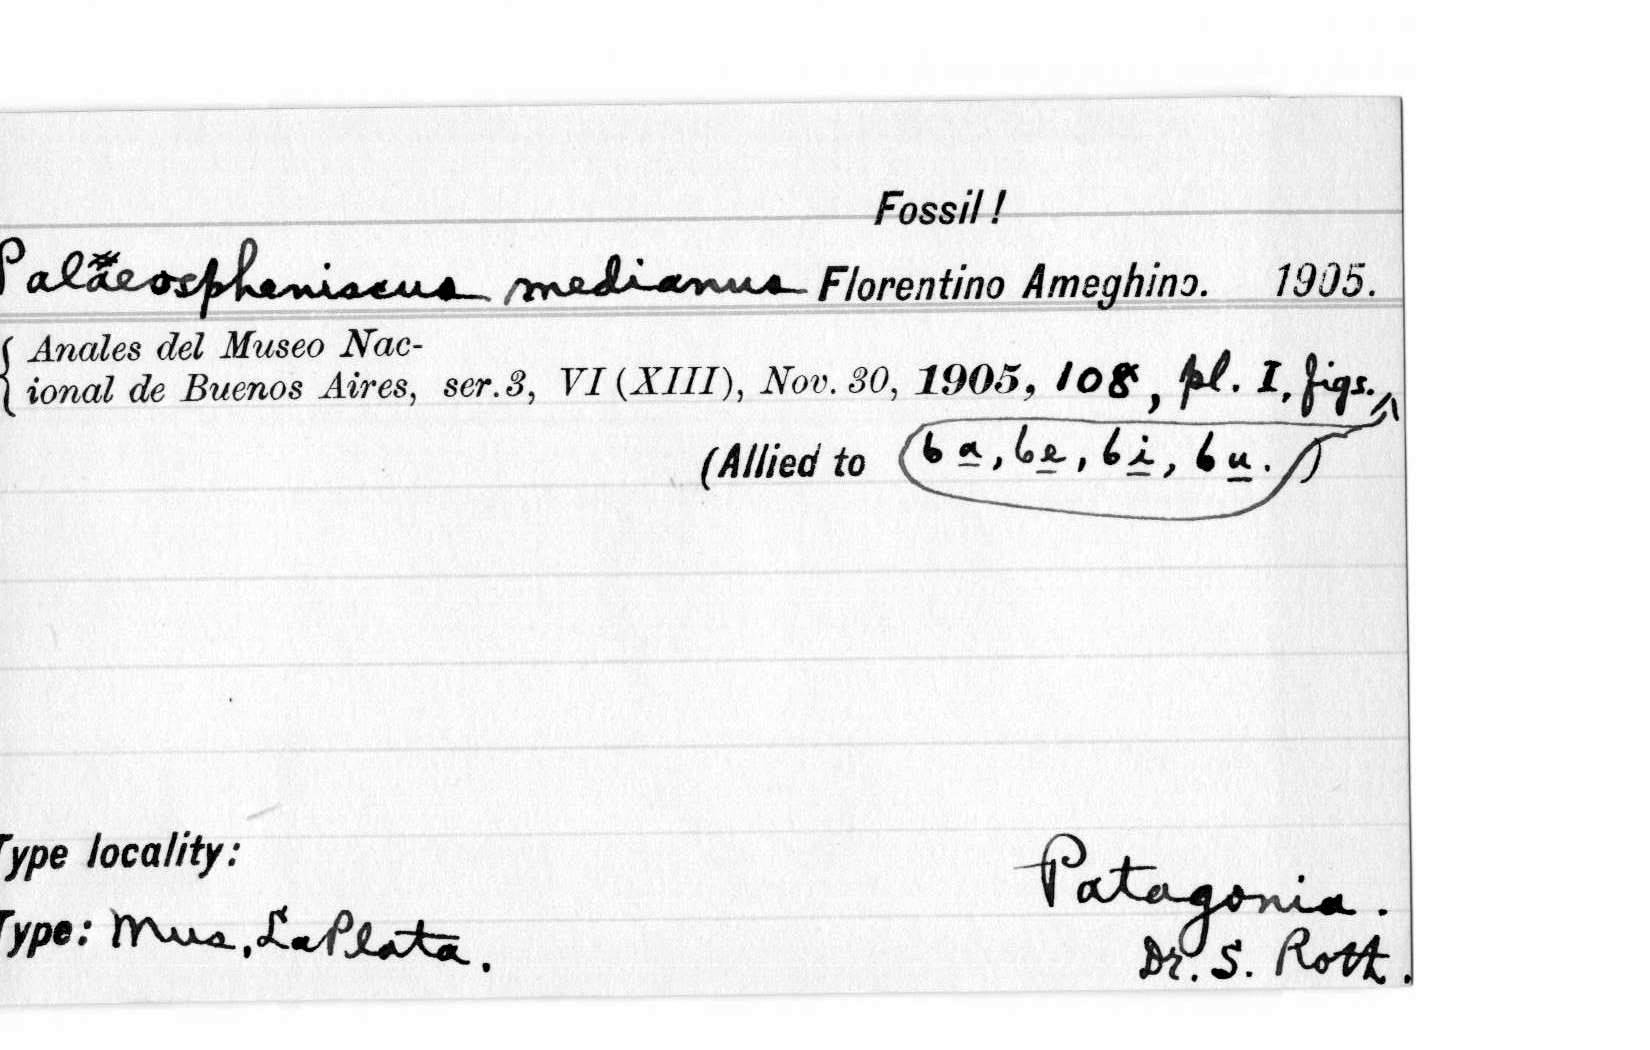 Fossil!
Palaeospheniscus medianus Florentino Ameghino. 1905.
Anales del Museo Nac-
ional de Buenos Aires, ser. 3, VI (XIII), Nov. 30, 1905, 108, pl. I, figs.
(Allied to 6a, 6e, 6i, 6u. )
Type locality:
Patagonia.
Type: Mus. La Plata.
Dr. S. Roth.